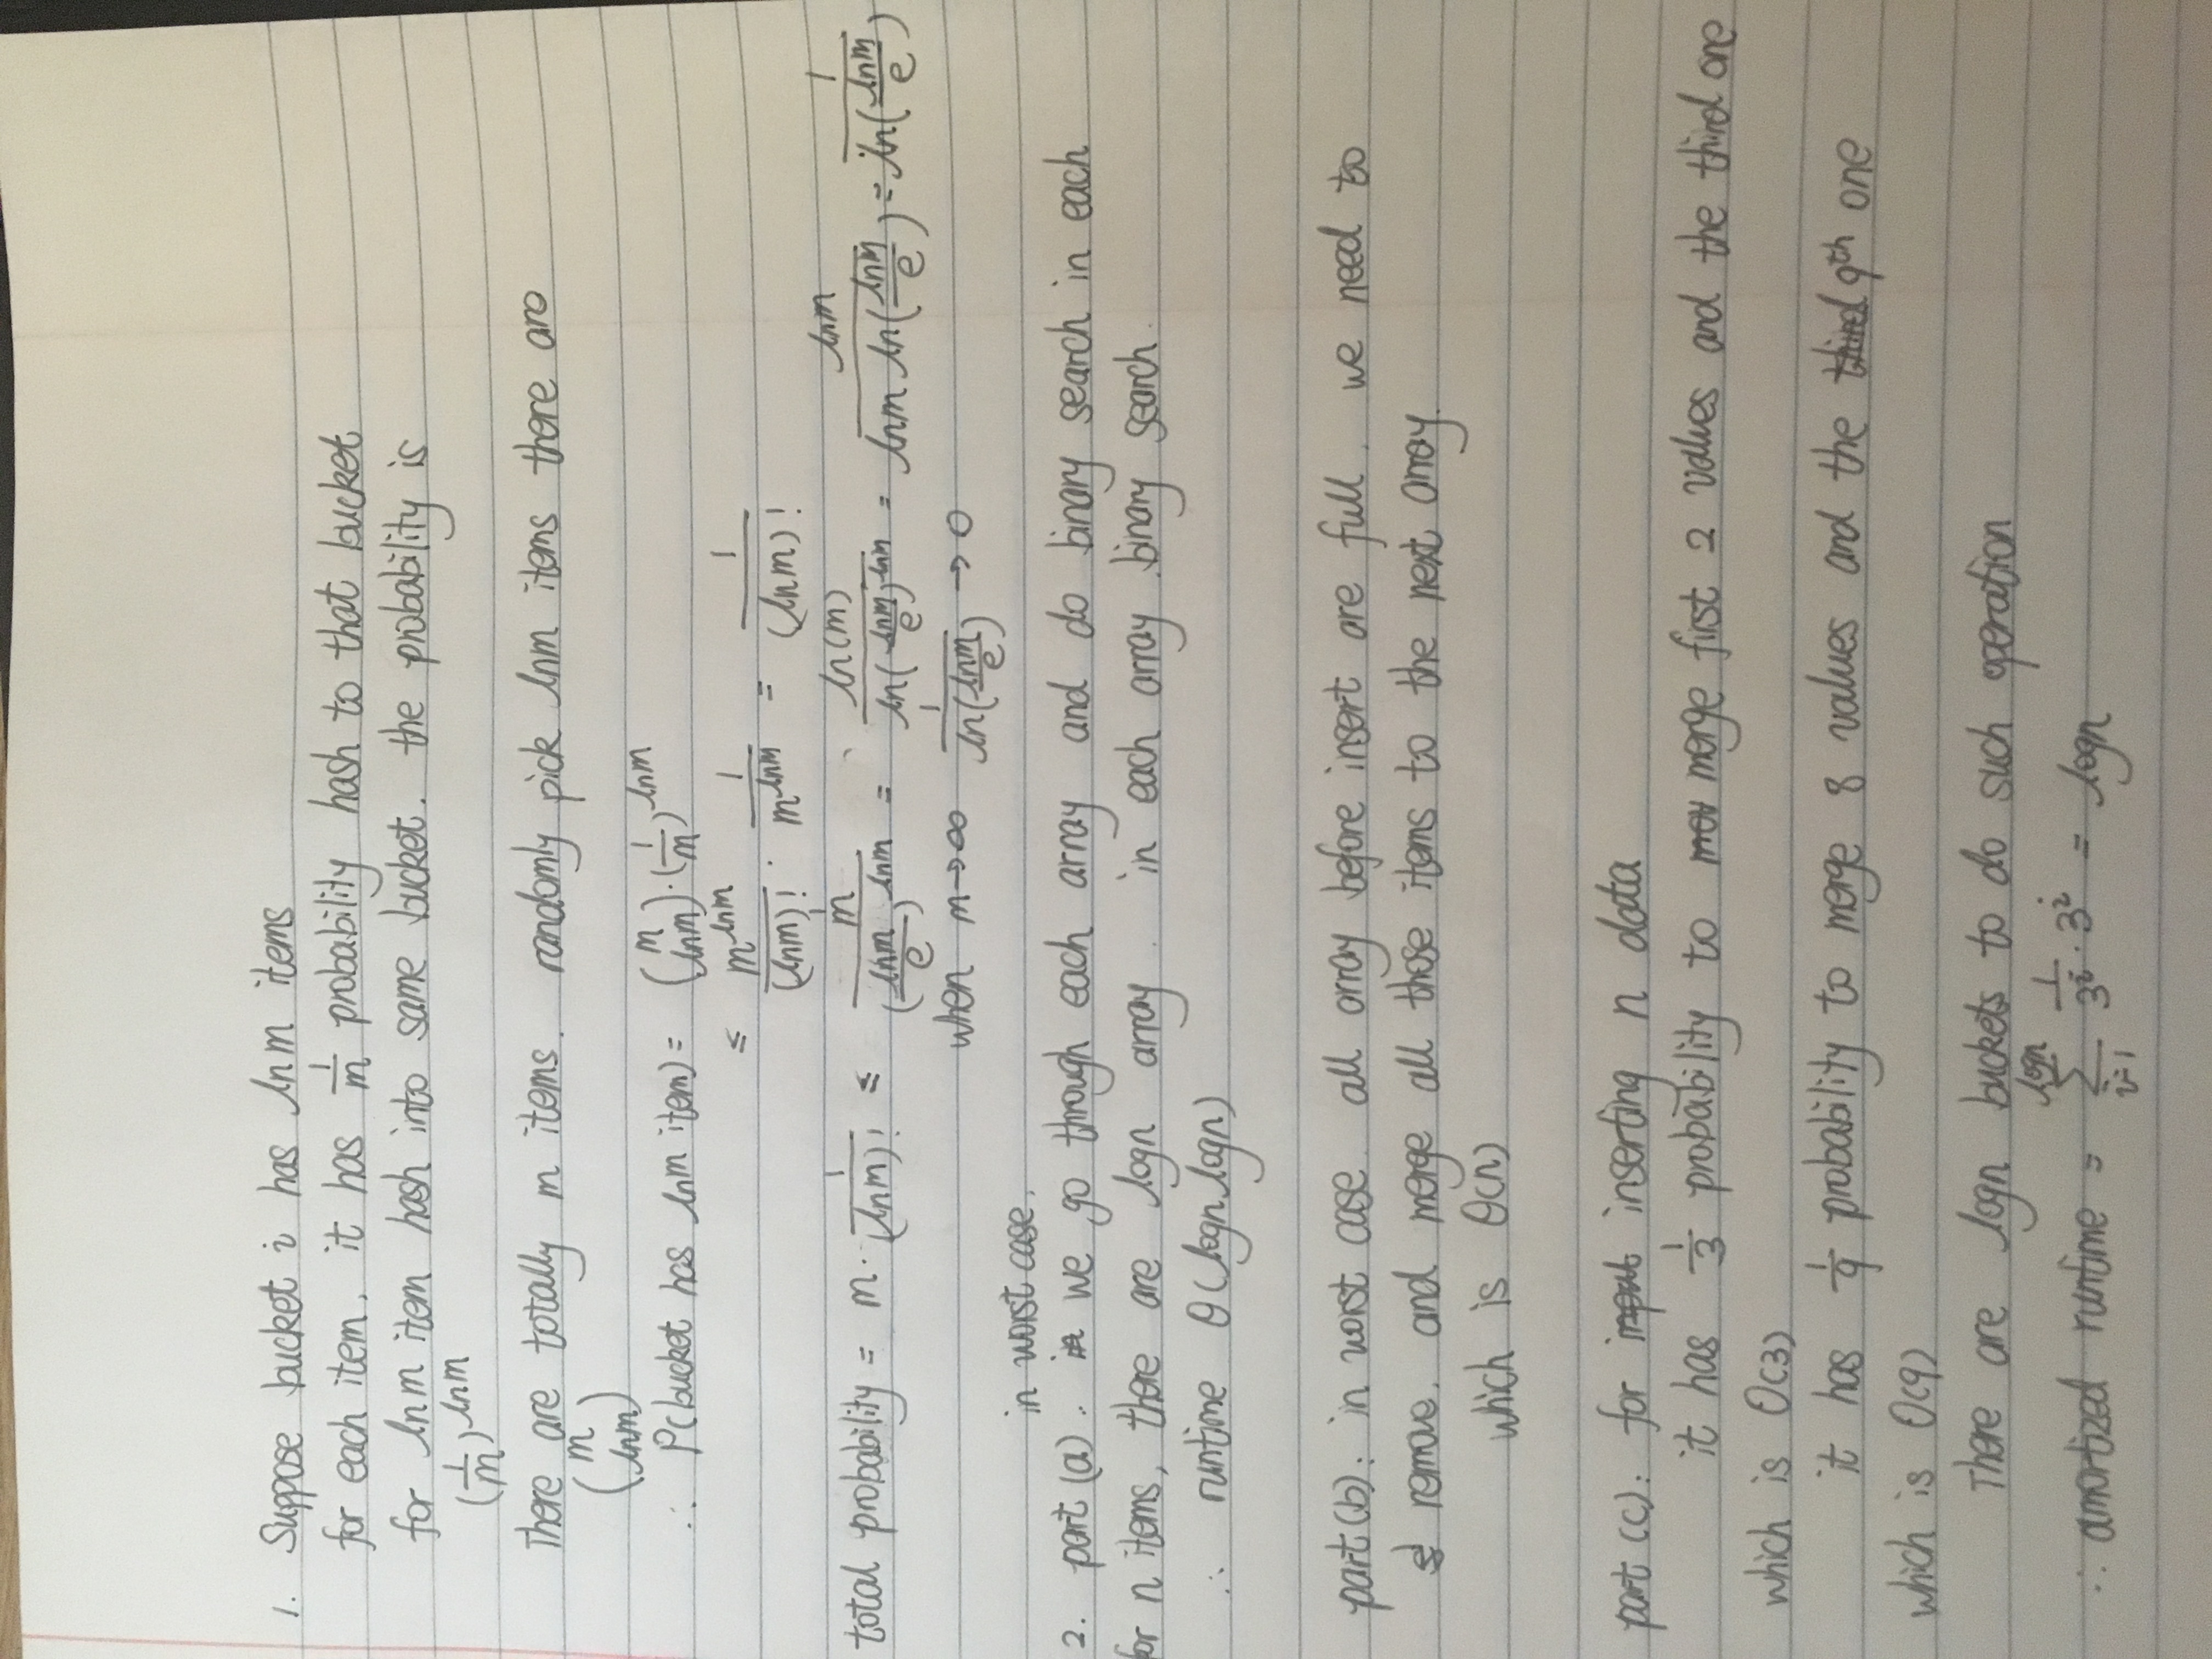 1. Suppose bucket i has ln m items
for each item, it has 1/m probability hash to that bucket
for ln m item hash into same bucket. the probability is
(1/m)^ln m
There are totally m items. randomly pick ln m items there are
(m ln m)
∴ P(bucket has ln m item) = (m ln m) · (1/m)^ln m
≤ m^ln m / (ln m)! · 1 / m^ln m = 1 / (ln m)!
total probability = m · 1/(ln m)! ≤ m / (ln m / e)^ln m = ln(m) / ln(ln m / e)^ln m = ln m / ln m ln(ln m / e) = 1 / ln(ln m / e)
when m→∞ 1 / ln(ln m / e) → 0
in worst case,
2. part (a). we go through each array and do binary search in each
for n items, there are logn array. in each array binary search.
∴ runtime θ(logn.logn)
part(b): in worst case all array before insert are full. we need to
remove. and merge all those items to the next array.
which is θ(n)
part (c): for input inserting n data
it has 1/3 probability to mov merge first 2 values and the third one
which is O(3)
it has 1/9 probability to merge 8 values and the third 9th one
which is O(9)
There are logn buckets to do such operation
∴ amortized runtime = Σ_{i=1}^{logn} 1/3^i · 3^i = logn